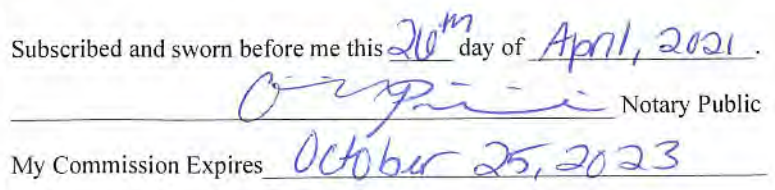 Subscribed and sworn before me this 26th day of April, 2021.
Notary Public
My Commission Expires October 25, 2023